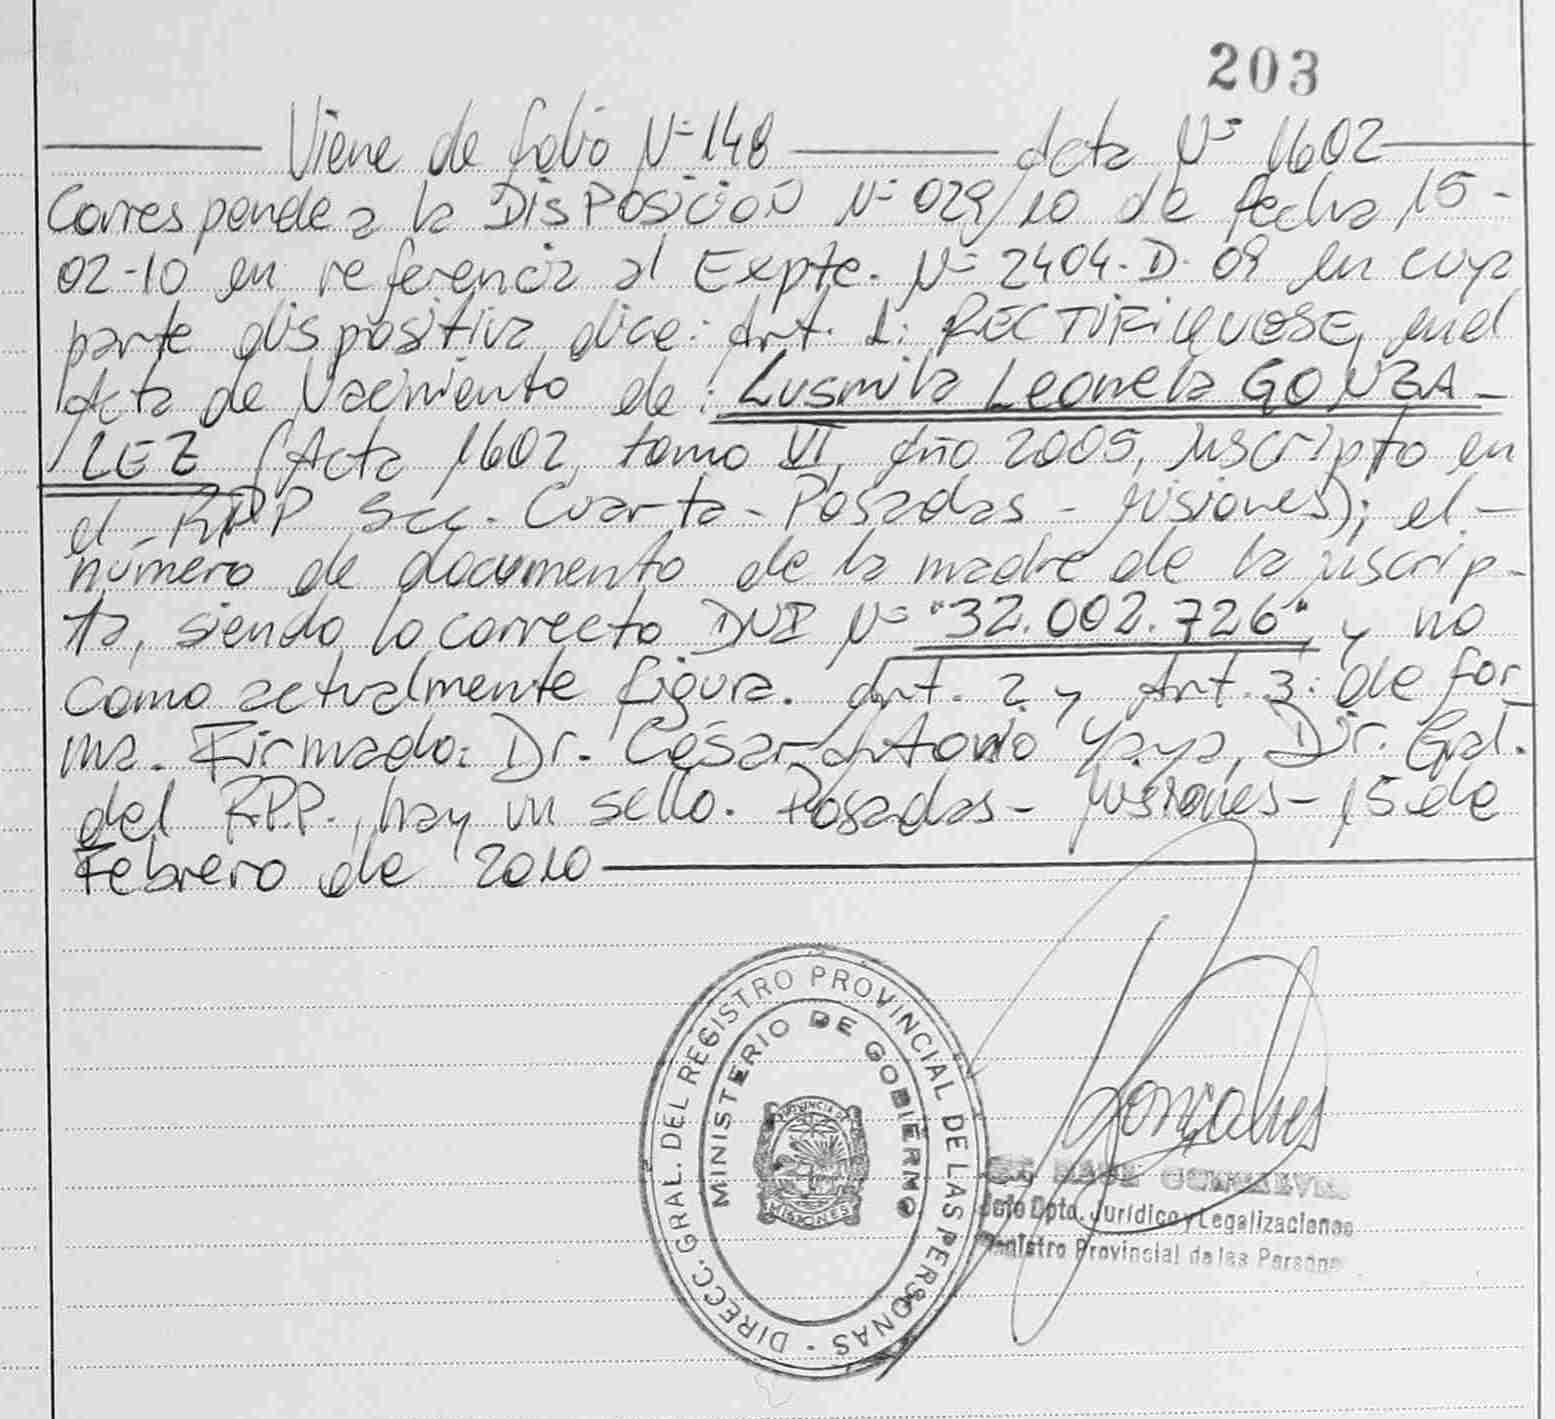 203
Viene de folio Nº 148 acta Nº 1602
Corresponde a la DISPOSICIÓN Nº 029/10 de fecha 15-
02-10 en referencia al Expte. Nº 2404-D-09 en cuya
parte dispositiva dice: Art. 1: RECTIFIQUESE, en el
Acta de Nacimiento de: Lusmila Leonela GONZA-
LEZ (Acta 1602, tomo VI, año 2005, inscripto en
el RPP Sec. Cuarta - Posadas - Misiones); el -
número de documento de la madre de la inscrip-
ta, siendo lo correcto DNI Nº "32.002.726" y no
como actualmente figura. Art. 2 y Art. 3: de for-
ma. Firmado: Dr. César Antonio Yaya, Dir. Gral.
del RPP., hay un sello. Posadas - Misiones - 15 de
Febrero de 2010
DIRECC. GRAL. DEL REGISTRO PROVINCIAL DE LAS PERSONAS
MINISTERIO DE GOBIERNO
PROVINCIA DE
MISIONES
Gonçalves
GONCALVES
Jefe Dpto. Jurídico y Legalizaciones
Registro Provincial de las Personas